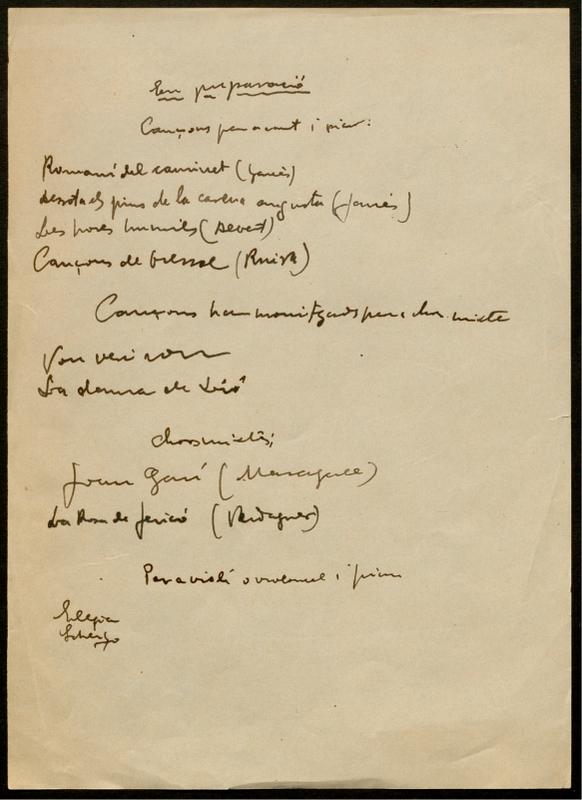 En preparació
Cançons per a cant i piano:
Romaní del caminet (Janés)
Dessota els pins de la carena augusta (Janés)
Les hores humils (
Cançons de bressol (
Cançons harmonitzades per a chor mixte
Von veri von
La dama de
Chors mixtes;
Joan Garí (Maragall)
La Rosa de Jericó (Verdaguer)
Per a violí o violoncel i piano
Elegia
Scherzo